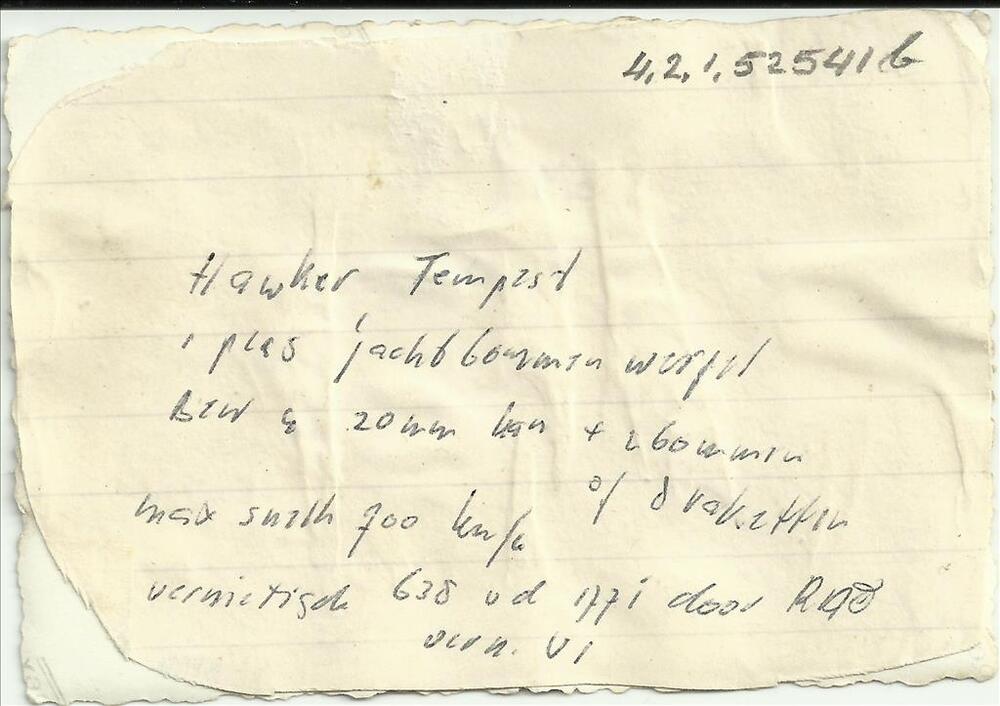 4.2.1.525416
Hawker Tempest
1 plas jachtbommenwerper
Bew 4 20 mm kan + 2 bommen
of 8 raketten
max snelh 700 km/u
vernietigde 638 vd 1771 door RAF
vern. V1